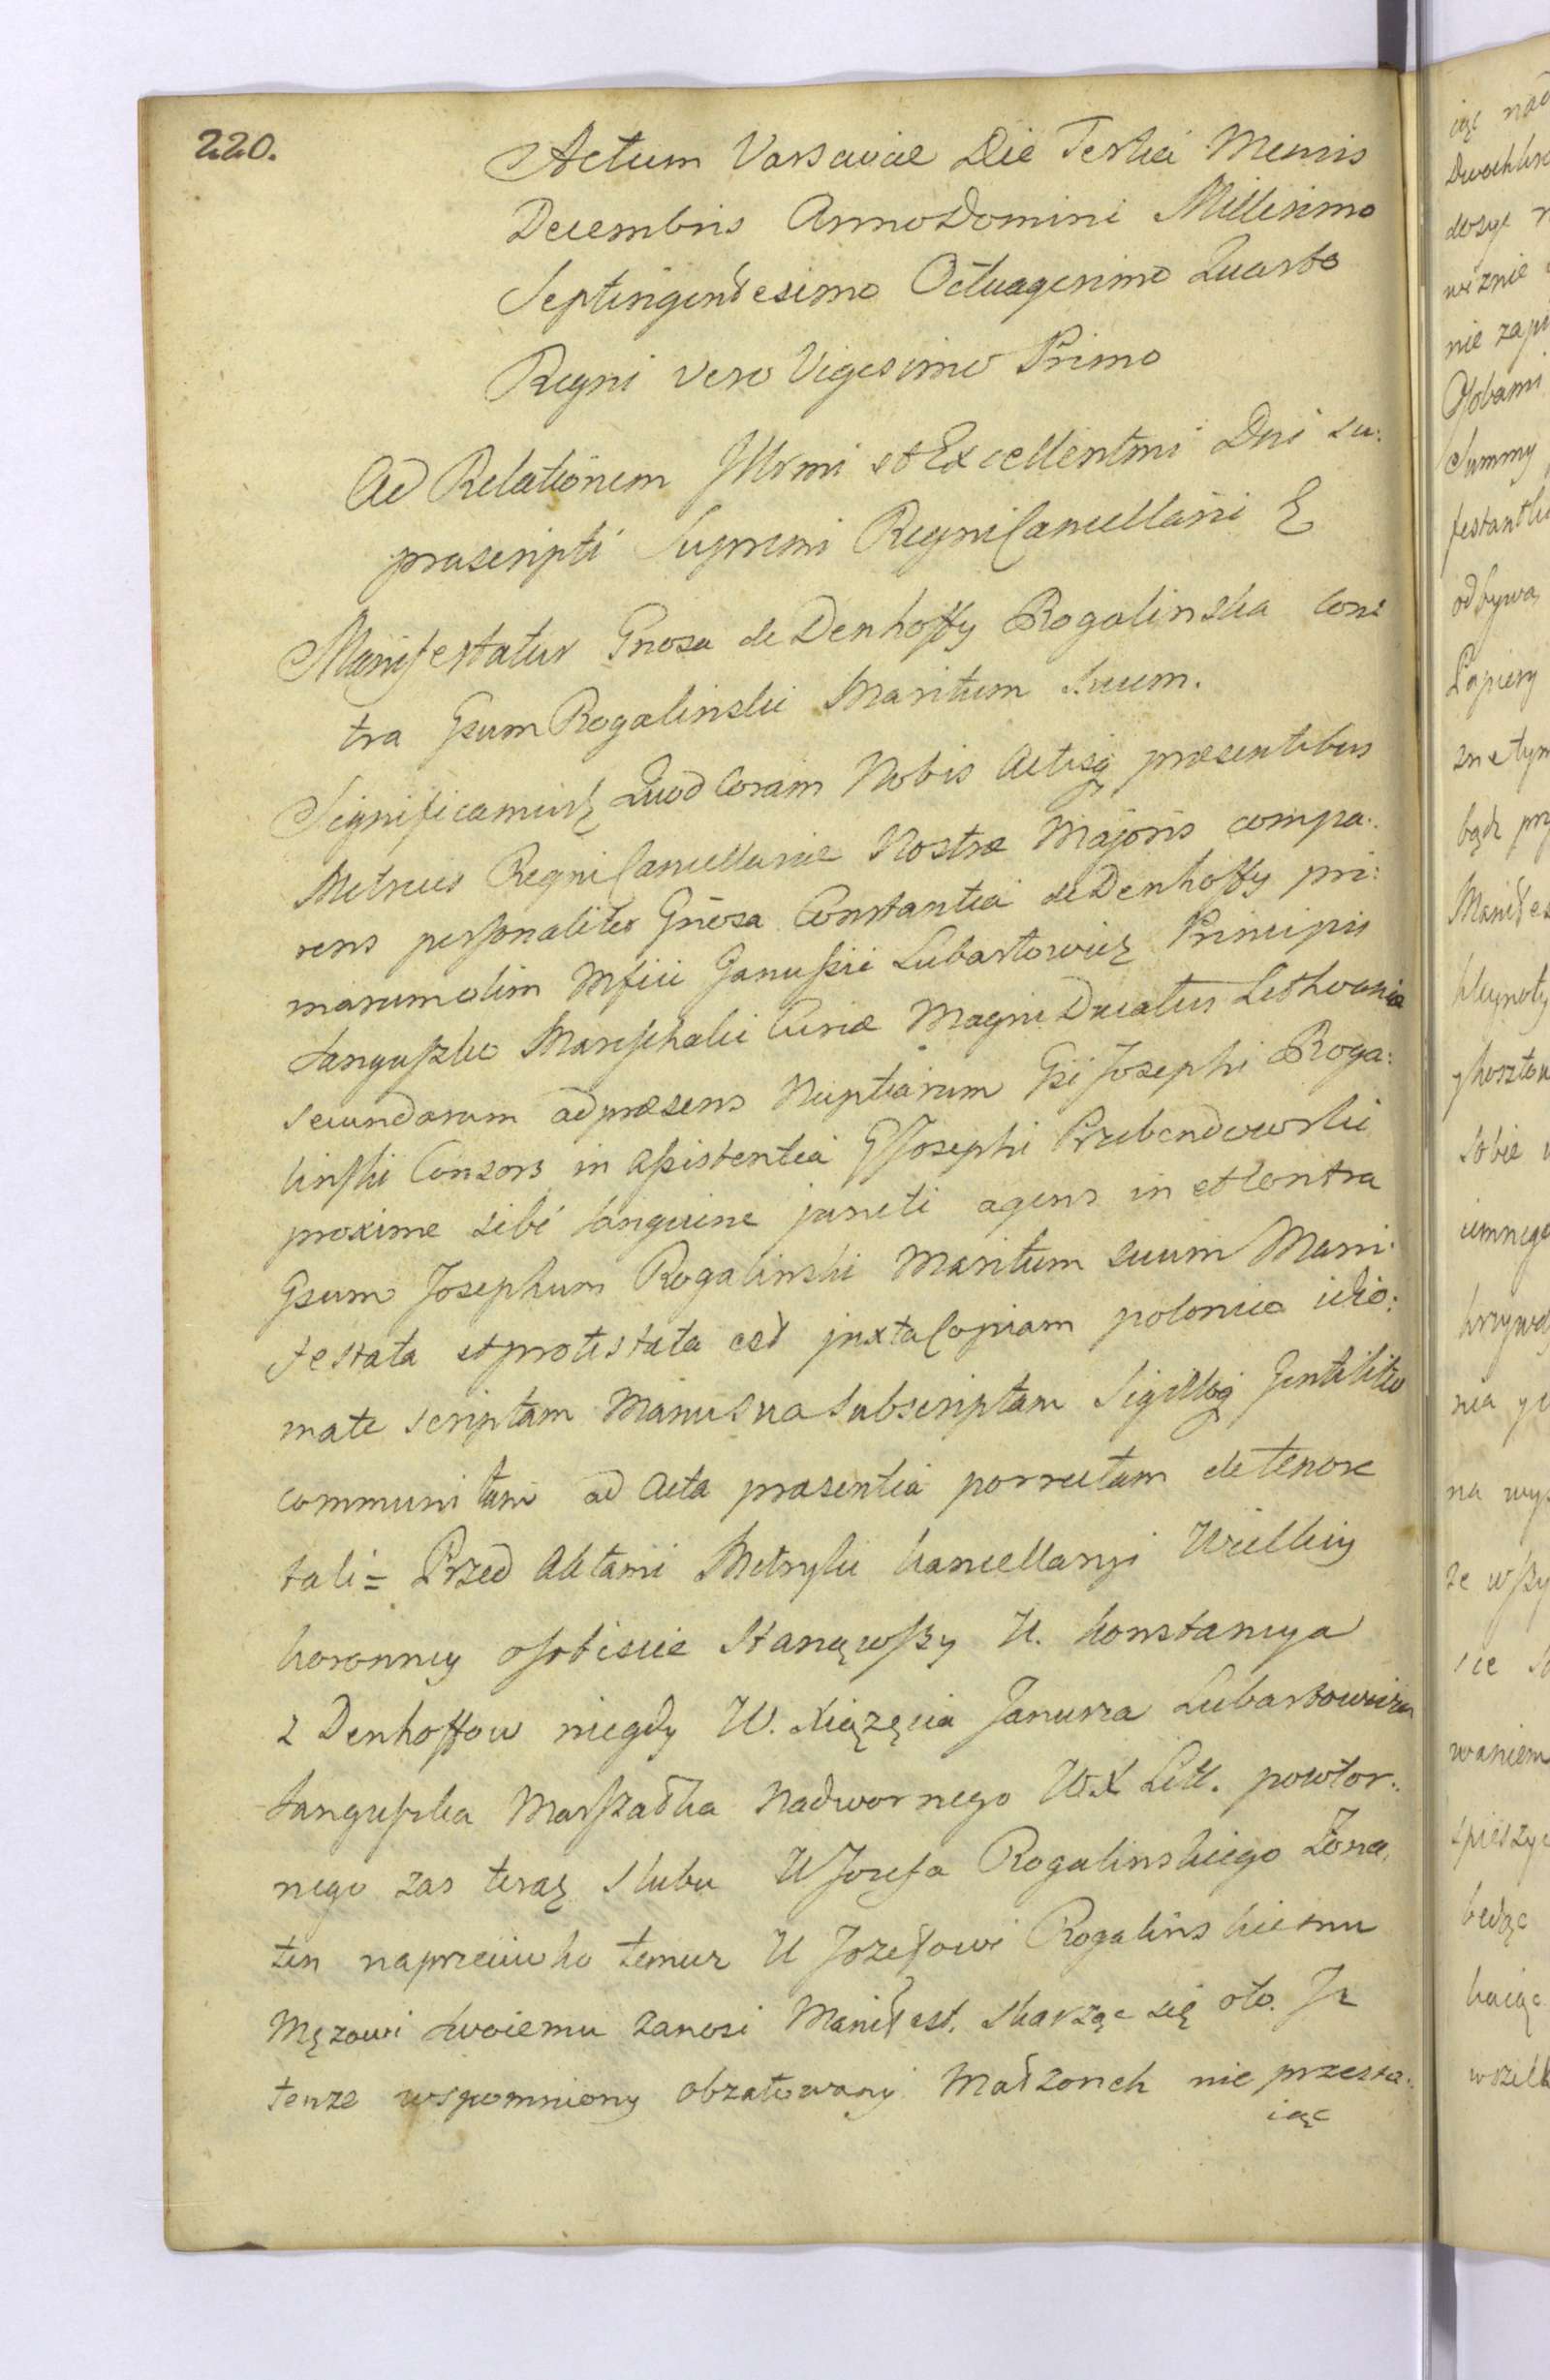 220.
Actum Varsaviae Die Tertia Mensis
Decembris Anno Domini Millesimo
Septingentesimo Octuagesimo Quarto
Regni vero Vigesimo Primo
Ad Relationem Illrmi et Excellentmi Dni su:
prascripti Supremi Regni Cancellarii
Manifestatur Gnosa de Denhoffy Rogalinska Con:
tra Gsum Rogalinski Maritum Suum.
Significamus Quod Coram Nobis Actisq praesentibus
Metrices Regni Cancellariae Nostrae Majoris compa:
rens personaliter Gnosa Constantia de Denhoffy pri:
marum olim Mfici Janussii Lubartowicz Principis
Sanguszko Marschalci Curiae Magni Ducatus Lethvaniae
secundarum ad praesens Nuptiarum Gsi Josephi Roga:
linski Consors in assistentia G Josephi Przebendowski
proxime sibi sanguine juncti agens in et Contra
Gsum Josephum Rogalinski Maritum Suum Mani:
festata et protestata est juxta Copiam polonico idio:
mate scriptam Manu Sua Subscriptam Sigilloq Gentilitio
communitam ad Acta praesentia porrectam de tenore
tali = Przed Aktami Metryki kancellaryi Wielkiy
koronney osobiscie Stanąwszy U. konstancya
z Denhoffow niegdy W. Xiązęcia Janusza Lubartowicza
Sanguszka Marszałka Nadwornego W X Litt. powtor:
nego zas teraz slubu U Jozefa Rogalinskiego Zona,
ten naprzeciwko temuz U Jozefowi Rogalinskiemu
Męzowi Swoiemu zanosi Manifest. Skarząc się oto. Iz
tenze wspomniony obzałowany Małzonek nie przesta:
iąc